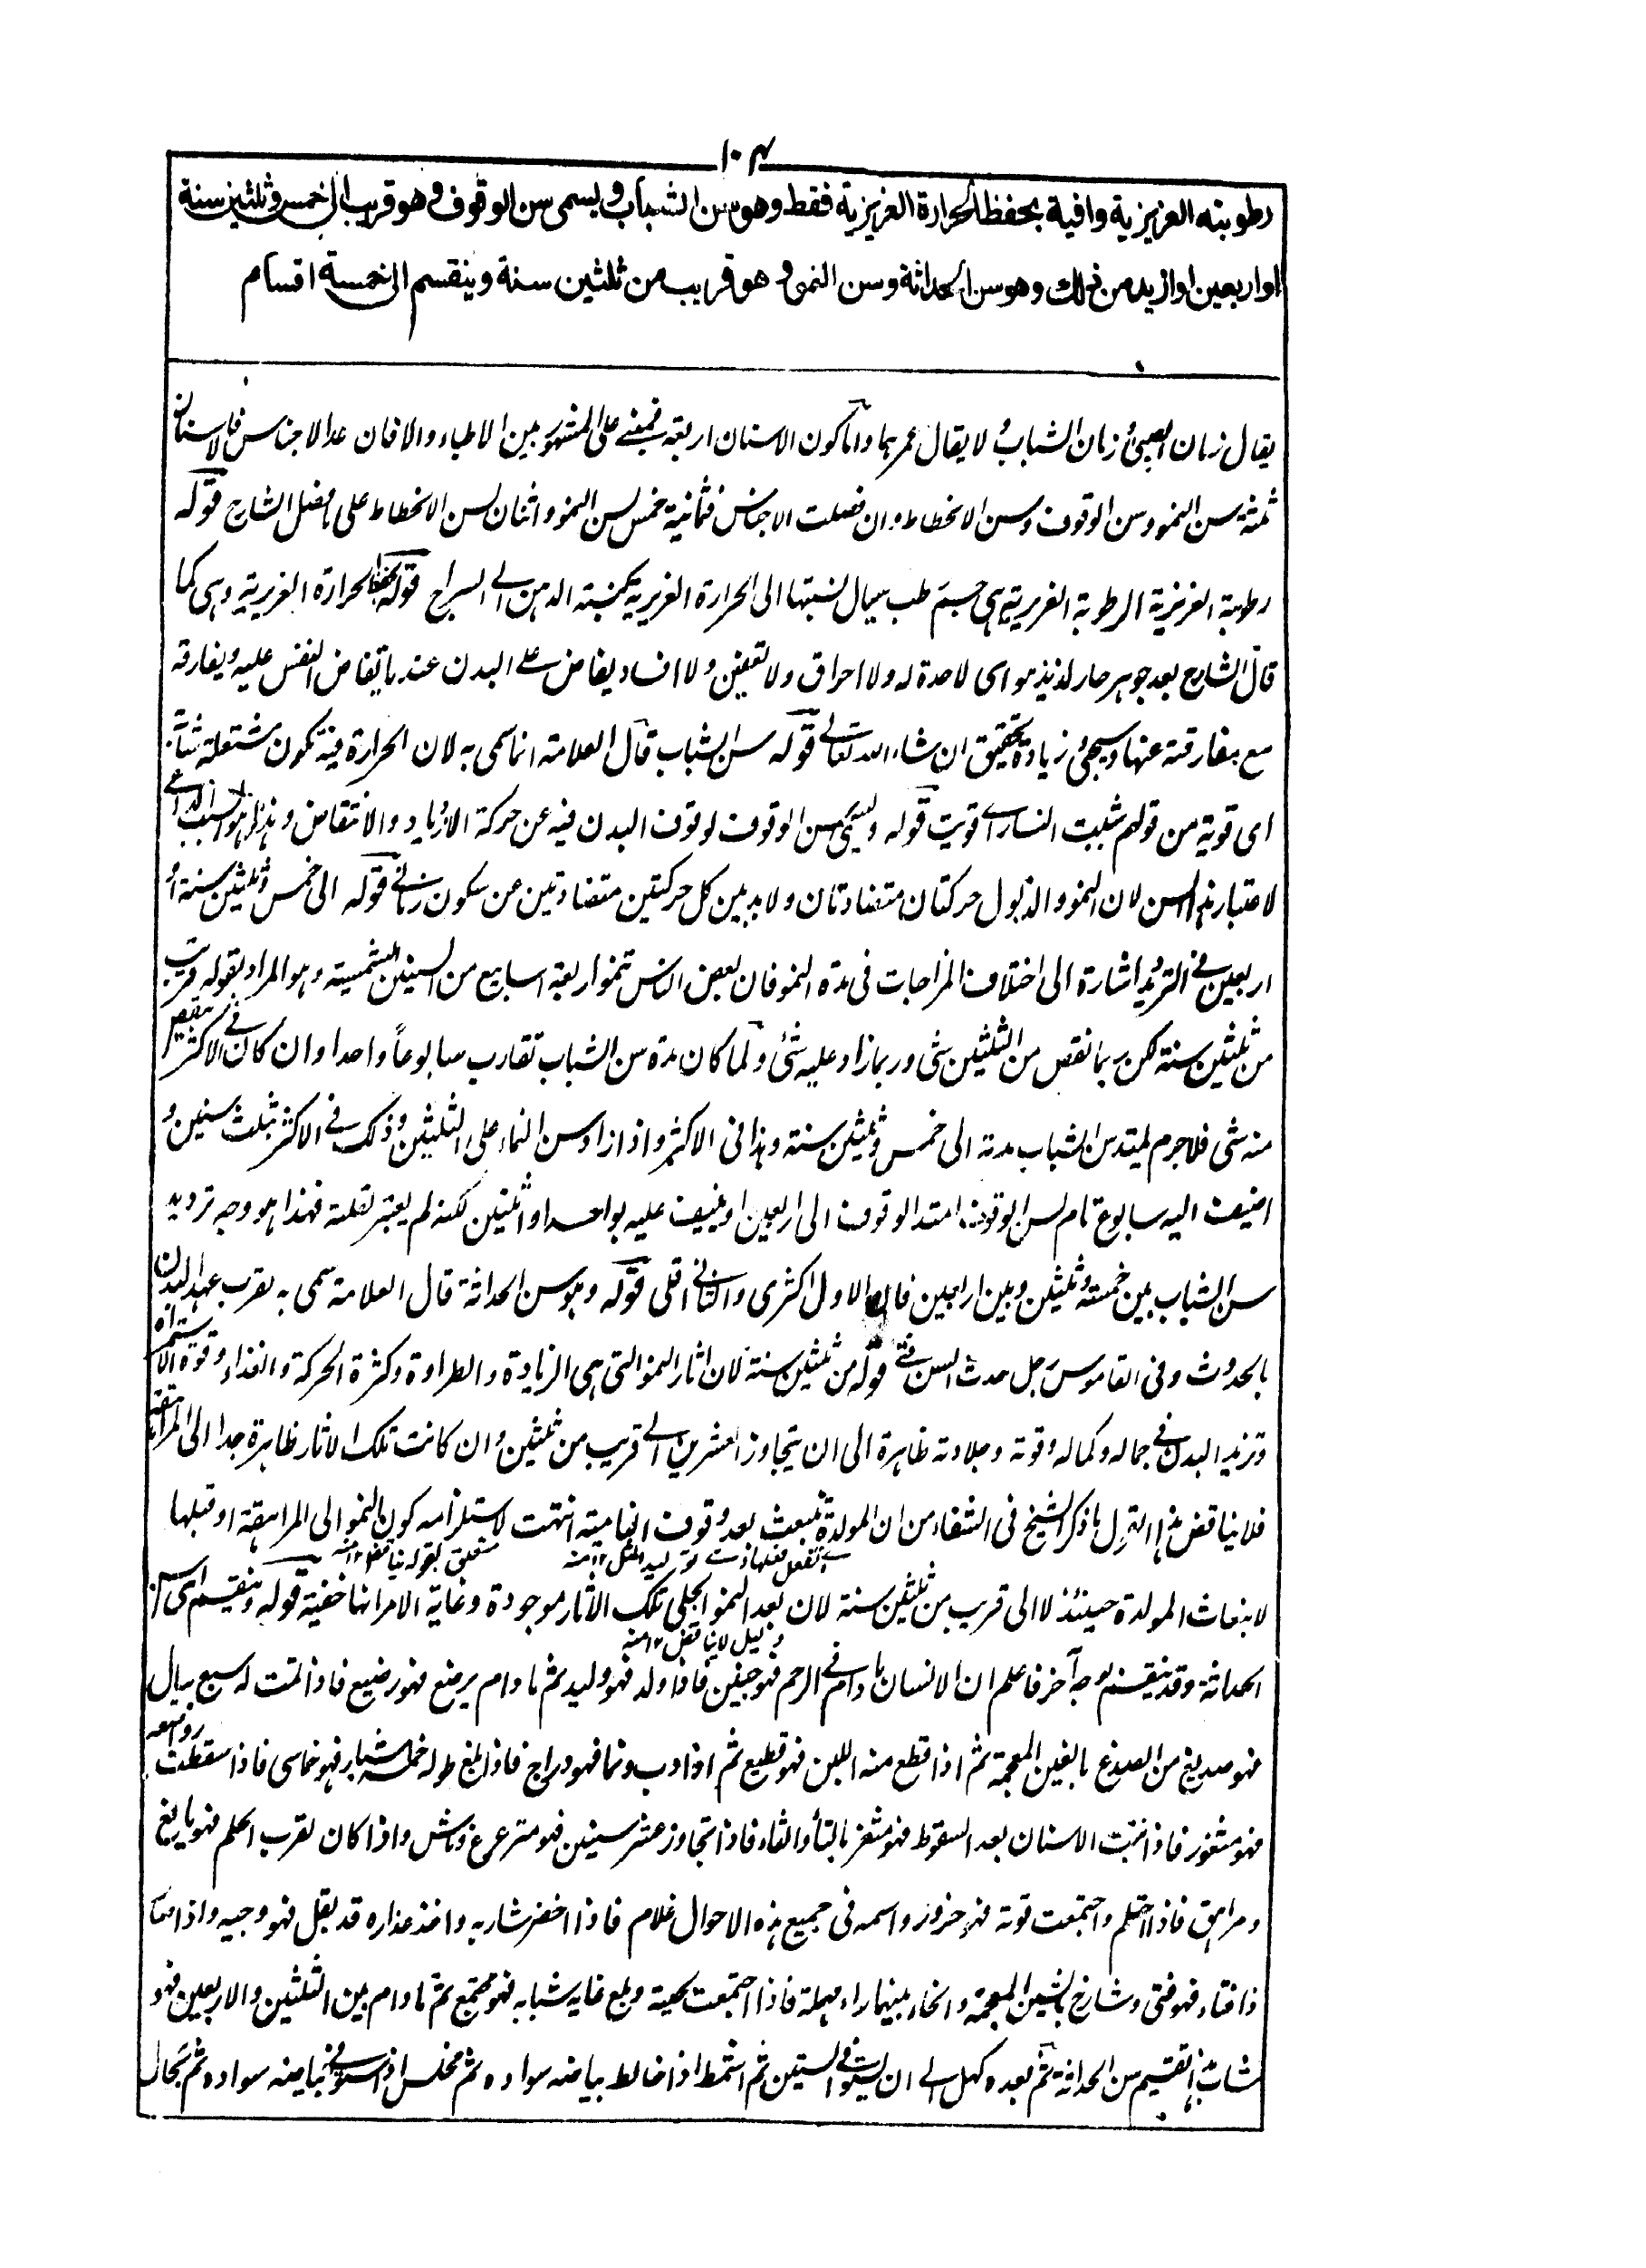 ١٠٤
رطوبته الغريزية وافية بحفظ الحرارة الغريزية فقط وهو سن الشباب ويسمى سن الوقوف وهو قريب الى خمس وثلثين سنة
او اربعين او ازيد من ذلك وهو سن الحداثة وسن النمو وهو قريب من ثلثين سنة وينقسم الى خمسة اقسام
يقال زمان الصبى وزمان الشباب ولا يقال عمرهما واما كون الاسنان اربعة فمبنى على المشهور بين الاطباء والا فان عد الاجناس فالاسنان
ثلثة سن النمو وسن الوقوف وسن الانحطاط وان فصلت الاجناس فثمانية خمس لسن النمو واثنان لسن الانحطاط على ما فصل الشارح قوله
رطوبة الغريزية الرطوبة الغريزية هى جسم رطب سيال نسبتها الى الحرارة الغريزية كنسبة الدهن الى السراج قوله بحفظ الحرارة الغريزية وهى كما
قال الشارح بعد جوهر حار لذيذ هوائى لا حدة له ولا احراق ولا تعفين ولا افساد يفاض على البدن عند ما يفاض النفس عليه ويفارقه
مع مفارقته عنها وسيجئ زيادة تحقيق ان شاء الله تعالى قوله سن الشباب قال العلامة انما سمى به لان الحرارة فيه تكون مشتعلة شابة
اى قوية من قولهم شببت النار اى قويت قوله ويسمى سن الوقوف لوقوف البدن فيه عن حركة الازدياد والانتقاص وهذا هو السبب الداعى
لاعتبار هذا السن لان النمو والذبول حركتان متضادتان ولا بد بين كل حركتين متضادتين من سكون زمانى قوله الى خمس وثلثين سنة او
اربعين فى الترديد اشارة الى اختلاف المزاجات فى مدة النمو فان بعض الناس تنمو اربعة اسابيع من السنين الشمسية وهو المراد بقوله قريب
من ثلثين سنة لكن ربما نقص من الثلثين شئ وربما زاد عليه شئ ولما كان مدة سن الشباب تقارب سابوعاً واحدا وان كان فى الاكثر ينقص
منه شئ فلا جرم يمتد سن الشباب مدته الى خمس وثلثين سنة وهذا فى الاكثر واذا زاد سن النماء على الثلثين وذلك فى الاكثر بثلث سنين و
اضيفت اليه سابوع تام لسن الوقوف امتد الوقوف الى اربعين او ينيف عليه بواحد او اثنين لكنه لم يعتبر لقلته فهذا هو وجه ترديد
سن الشباب بين خمسة وثلثين وبين اربعين فان الاول اكثرى والثانى اقلى قوله وهو سن الحداثة قال العلامة سمى به لقرب عهد البدن
بالحدوث وفى القاموس رجل حدث السن فتى قوله من ثلثين سنة لان اثار النمو التى هى الزيادة والطراوة وكثرة الحركة والغذاء وقوة الاستمراء
وتزيد البدن فى جماله وكماله وقوته وجلادته ظاهرة الى ان يتجاوز العشرين الى قريب من ثلثين وان كانت تلك الاثار ظاهرة جدا الى المراهقة
فلا يناقض هذا القول ما ذكر الشيخ فى الشفاء من ان المولدة تنبعث بعد وقوف النامية انتهت لاستلزامه كون النمو الى المراهقة او قبلها
متعلق بقوله يناقض ١٢ منه
لانبعاث المولدة حينئذ لا الى قريب من ثلثين سنة لان بعد النمو الجلى تلك الاثار موجودة وغاية الامر انها خفية قوله وينقسم اى سن
دليل لا يناقض ١٢ منه
الحداثة وقد ينقسم بوجه آخر فاعلم ان الانسان ما دام فى الرحم فهو جنين فاذا ولد فهو وليد ثم ما دام يرضع فهو رضيع فاذا تمت له سبع ليال
فهو صديغ من الصدغ بالغين المعجمة ثم اذا قطع منه اللبن فهو قطيع ثم اذا دب ونما فهو دراج فاذا بلغ طوله خمسة اشبار فهو خماسى فاذا سقطت رواضعه
فهو مثغور فاذا نبتت الاسنان بعد السقوط فهو مثغر بالتاء والثاء فاذا تجاوز عشر سنين فهو مترعرع وناش واذا كان لقرب الحلم فهو يافع
ومراهق فاذا احتلم واجتمعت قوته فهو حزور واسمه فى جميع هذه الاحوال غلام فاذا اخضر شاربه واخذ عذاره قد بقل فهو وجيه واذا صار
ذا فتاء فهو فتى وشارخ بالشين المعجمة والخاء بينهما راء مهملة فاذا اجتمعت لحيته وبلغ غاية شبابه فهو مجتمع ثم ما دام بين الثلثين والاربعين فهو
شاب هذا تقسيم سن الحداثة ثم بعده كهل الى ان يستوفى الستين ثم اشمط اذا خالط بياضه سواده ثم مخلس اذا استوفى بياضه سواده ثم بجال